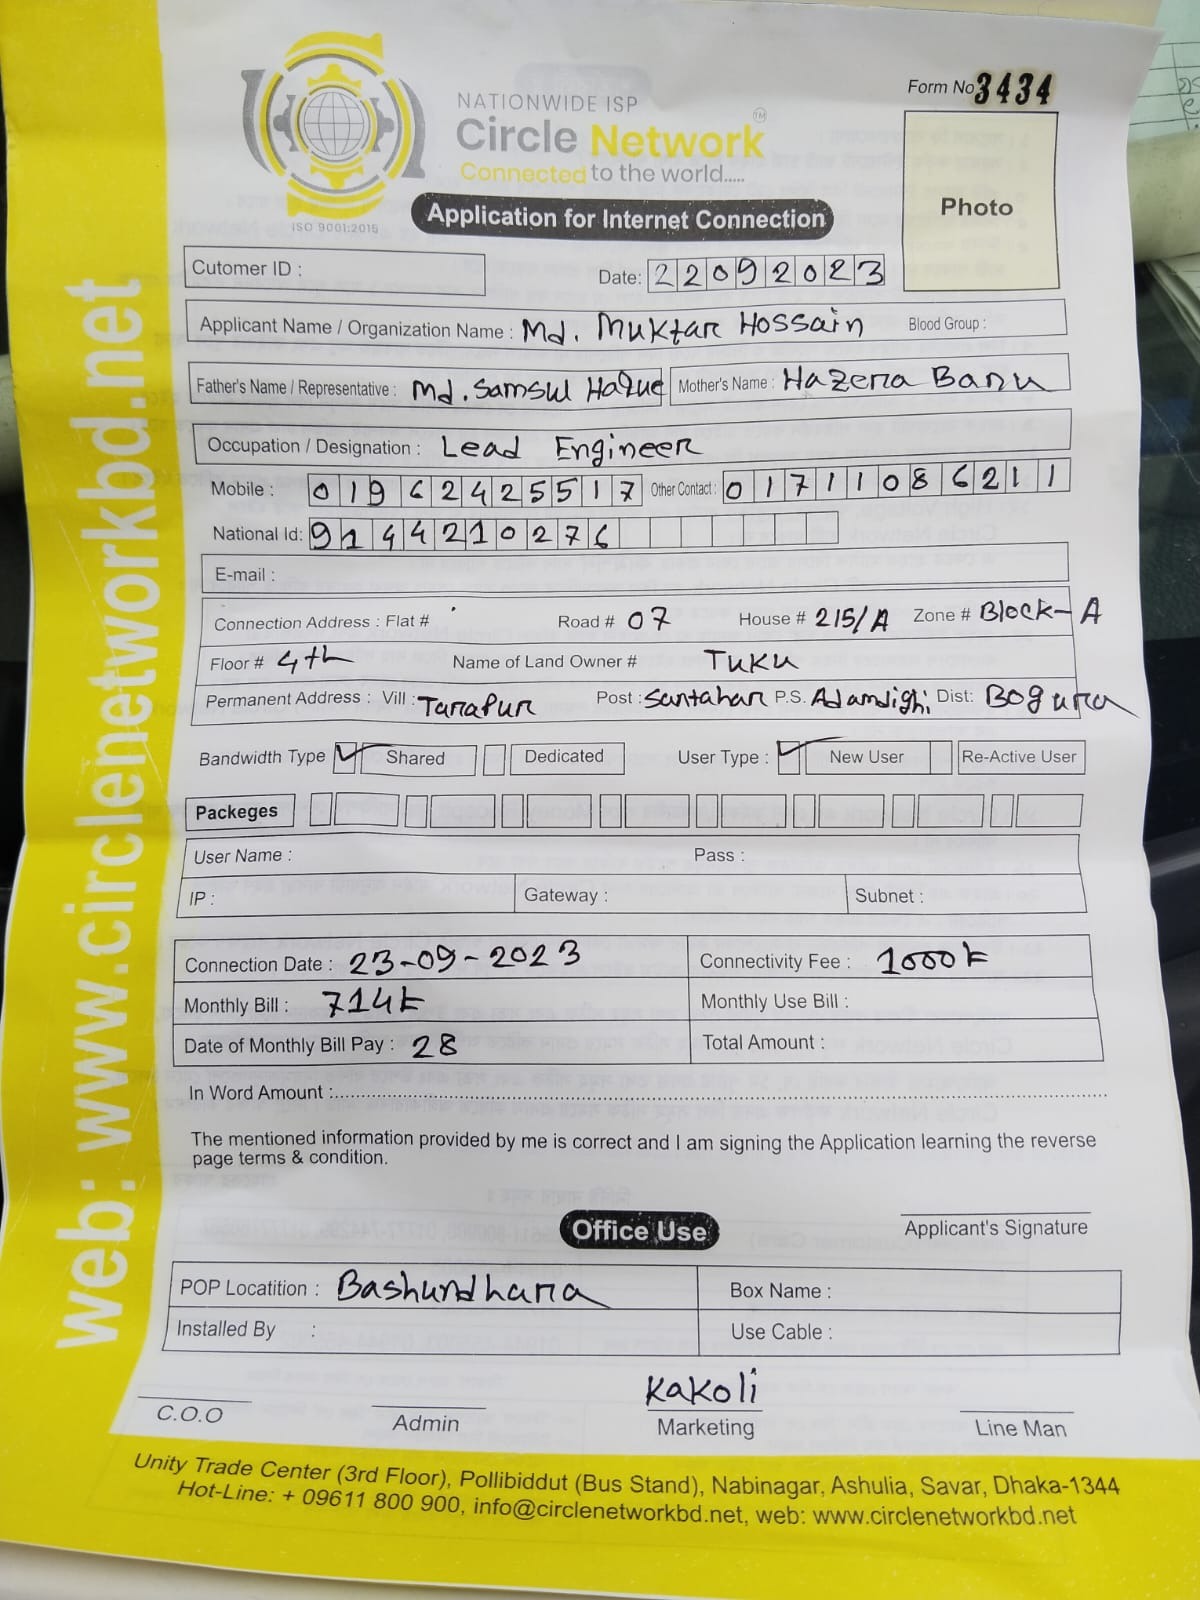 web: www.circlenetworkbd.net
Form No 3434
NATIONWIDE ISP
Circle Network TM
Connected to the world.....
ISO 9001:2015
Application for Internet Connection
Photo
Cutomer ID :
Date: 22092023
Applicant Name / Organization Name : Md. Muktar Hossain Blood Group :
Father's Name / Representative : Md. Samsul Haque Mother's Name : Hazera Banu
Occupation / Designation : Lead Engineer
Mobile : 01962425517 Other Contact : 01711086211
National Id: 9144210276
E-mail :
Connection Address : Flat # Road # 07 House # 215/A Zone # Block-A
Floor # 4th Name of Land Owner # Tuku
Permanent Address : Vill : Tarapur Post : Santahar P.S. Adamdighi Dist: Bogura
Bandwidth Type Shared Dedicated User Type : New User Re-Active User
Packeges
User Name : Pass :
IP : Gateway : Subnet :
Connection Date : 23-09-2023 Connectivity Fee : 1000৳
Monthly Bill : 714৳ Monthly Use Bill :
Date of Monthly Bill Pay : 28 Total Amount :
In Word Amount :
The mentioned information provided by me is correct and I am signing the Application learning the reverse
page terms & condition.
Office Use
Applicant's Signature
POP Locatition : Bashundhara Box Name :
Installed By : Use Cable :
Kakoli
C.O.O Admin Marketing Line Man
Unity Trade Center (3rd Floor), Pollibiddut (Bus Stand), Nabinagar, Ashulia, Savar, Dhaka-1344
Hot-Line: + 09611 800 900, info@circlenetworkbd.net, web: www.circlenetworkbd.net